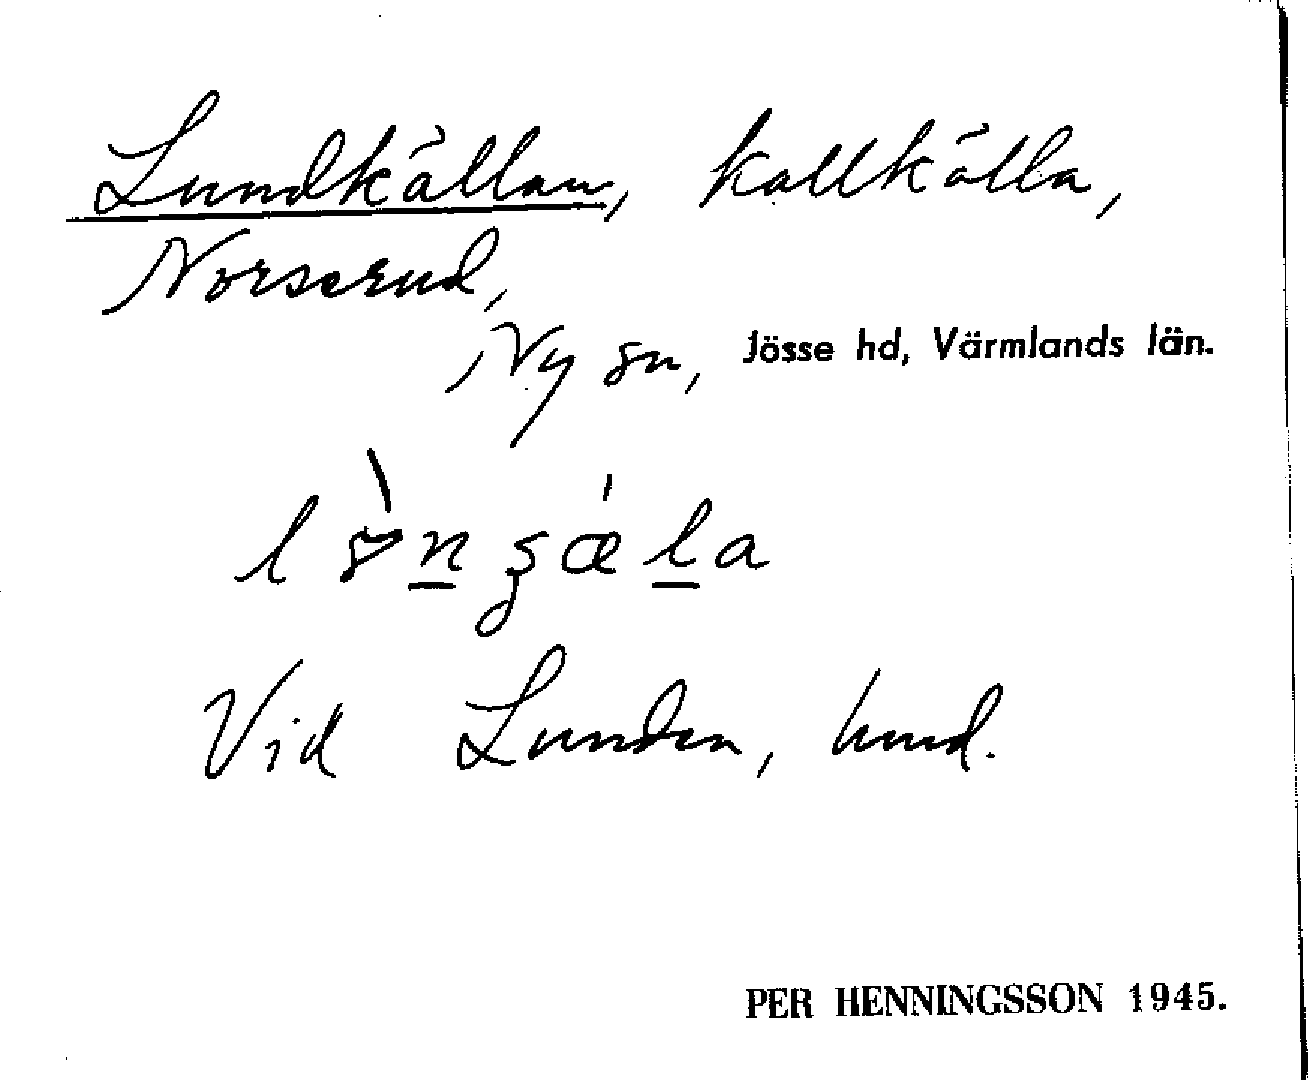 Lundkällan, kallkälla,
Norserud,
Ny sn, Jösse hd, Värmlands län.
Vid Lunden, hmd.
PER HENNINGSSON 1945.